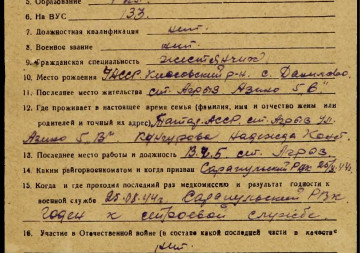 5. Образование
6. На ВУС 133
7. Должностная квалификация нет.
8. Военное звание нет.
9. Гражданская специальность жестянщик
10. Место рождения УАССР Киясовский р-н. с. Данилово.
11. Последнее место жительства ст. Агрыз Азина 5 "В"
12. Где проживает в настоящее время семья (фамилия, имя и отчество жены или
родителей и точный их адрес), Татар. АССР, ст. Агрыз ул.
Азина 5 "В" Надежда Конст.
13. Последнее место работы и должность ст. Агрыз.
14. Каким райгорвоенкоматом и когда призван Сарапульский РВК 25/8-44г.
15. Когда и где проходил последний раз медкомиссию и результат годности к
военной службе 25-08-44г. Сарапульский РВК
годен к строевой службе.
16. Участие в Отечественной войне (в составе какой последней части и в качестве
нет.